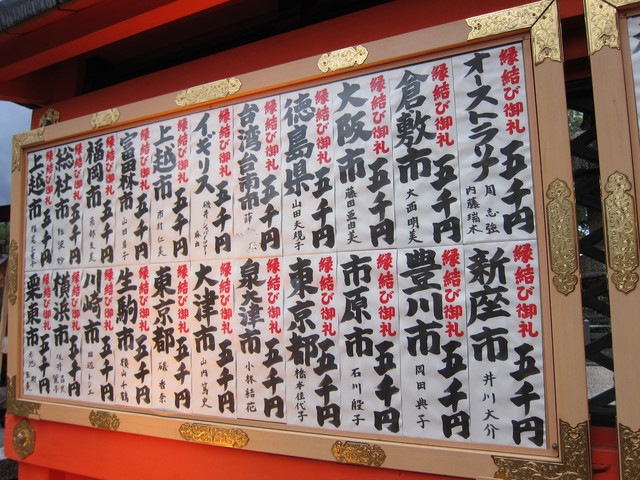 縁結び御礼 五千円
オーストラリア 周志強 内藤瑞木
縁結び御礼 五千円
倉敷市 大西明美
縁結び御礼 五千円
大阪市 藤田亜由美
縁結び御礼 五千円
徳島県 山田大規子
縁結び御礼 五千円
台湾台南市
縁結び御礼 五千円
イギリス
縁結び御礼 五千円
上越市 市村仁美
縁結び御礼 五千円
富田林市
縁結び御礼 五千円
福岡市
縁結び御礼 五千円
総社市
縁結び御礼 五千円
上越市
縁結び御礼 五千円
新座市 井川大介
縁結び御礼 五千円
豊川市 岡田典子
縁結び御礼 五千円
市原市 石川殷子
縁結び御礼 五千円
東京都 橋本佳代子
縁結び御礼 五千円
泉大津市 小林結花
縁結び御礼 五千円
大津市 山内篤史
縁結び御礼 五千円
東京都
縁結び御礼 五千円
生駒市
縁結び御礼 五千円
川崎市
縁結び御礼 五千円
横浜市
縁結び御礼 五千円
栗東市